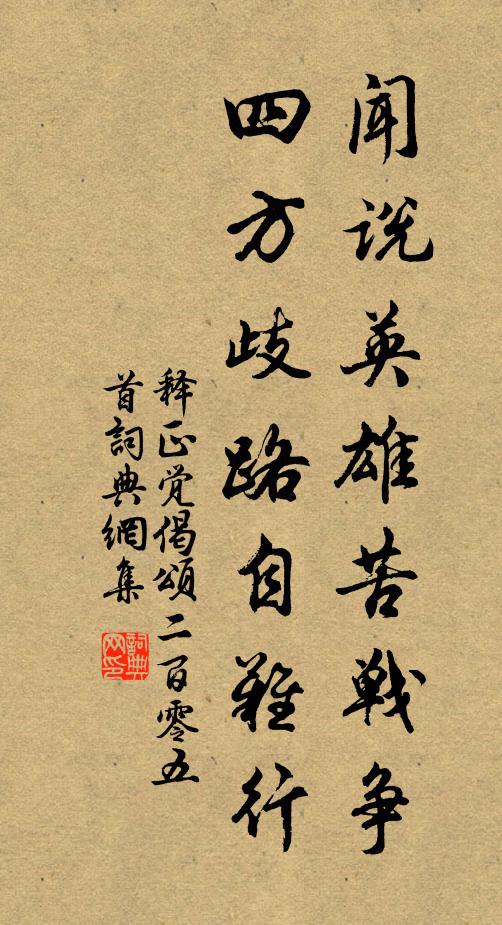 闻说英雄苦戰争
四方歧路自難行
释正覺偈頌二百零五
首詞典網集
詞典
网印